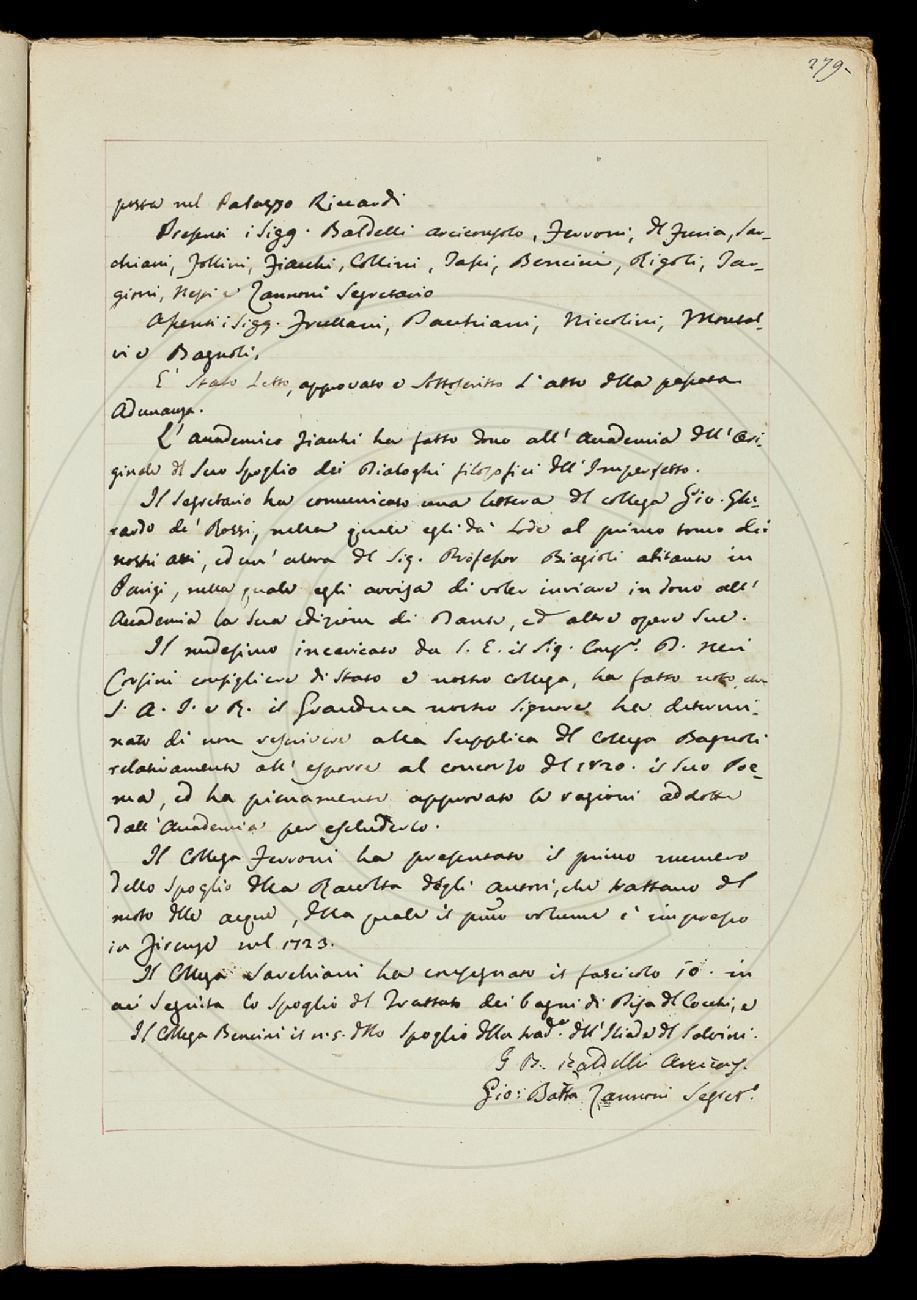 279.
posta nel Palazzo Riccardi
Presenti i Sigg. Baldelli arciconsolo, Ferroni, del Furia, Sar-
chiani, Follini, Fiacchi, Collini, Papi, Bencini, Rigoli, Tar-
gioni, Nesi e Zannoni Segretario
Assenti i Sigg. Frullani, Pauchiani, Niccolini, Montal-
vi e Bagnoli.
E' stato Letto, approvato e Sottoscritto L'atto della passata
Adunanza.
L'accademico Fiacchi ha fatto dono all'Accademia dell'Ori-
ginale del Suo Spoglio dei Dialoghi filosofici dell'Imperfetto.
Il Segretario ha comunicato una lettera del collega Gio. Ghe-
rardo de' Rossi, nella quale egli dà Lode al primo tomo dei
nostri atti, ed un' altra del Sig. Professor Biagioli abitante in
Parigi, nella quale egli avvisa di voler inviare in dono all'
Accademia la Sua edizione di Dante, ed altre opere Sue.
Il medesimo incaricato da S. E. il Sig. Cons.r D. Neri
Corsini consigliere di Stato e nostro collega, ha fatto noto, che
S. A. I. e R. il Granduca nostro Signore ha determi-
nato di non rescrivere alla Supplica del Collega Bagnoli
relativamente all' esporre al concorso del 1820. il Suo Poe-
ma, ed ha pienamente approvato le ragioni addotte
dall'Accademia per escluderlo.
Il Collega Ferroni ha presentato il primo numero
dello Spoglio della Raccolta degli autori, che trattano del
moto delle acque, della quale il primo volume è impresso
in Firenze nel 1723.
Il Collega Sarchiani ha consegnato il fascicolo 10. in
cui Seguita lo Spoglio del Trattato dei bagni di Pisa del Cocchi, e
Il Collega Bencini il n. 5. dello Spoglio della trad.e dell'Iliade del Salvini.
G B. Baldelli Arcicons.
Gio: Batta Zannoni Segret.o